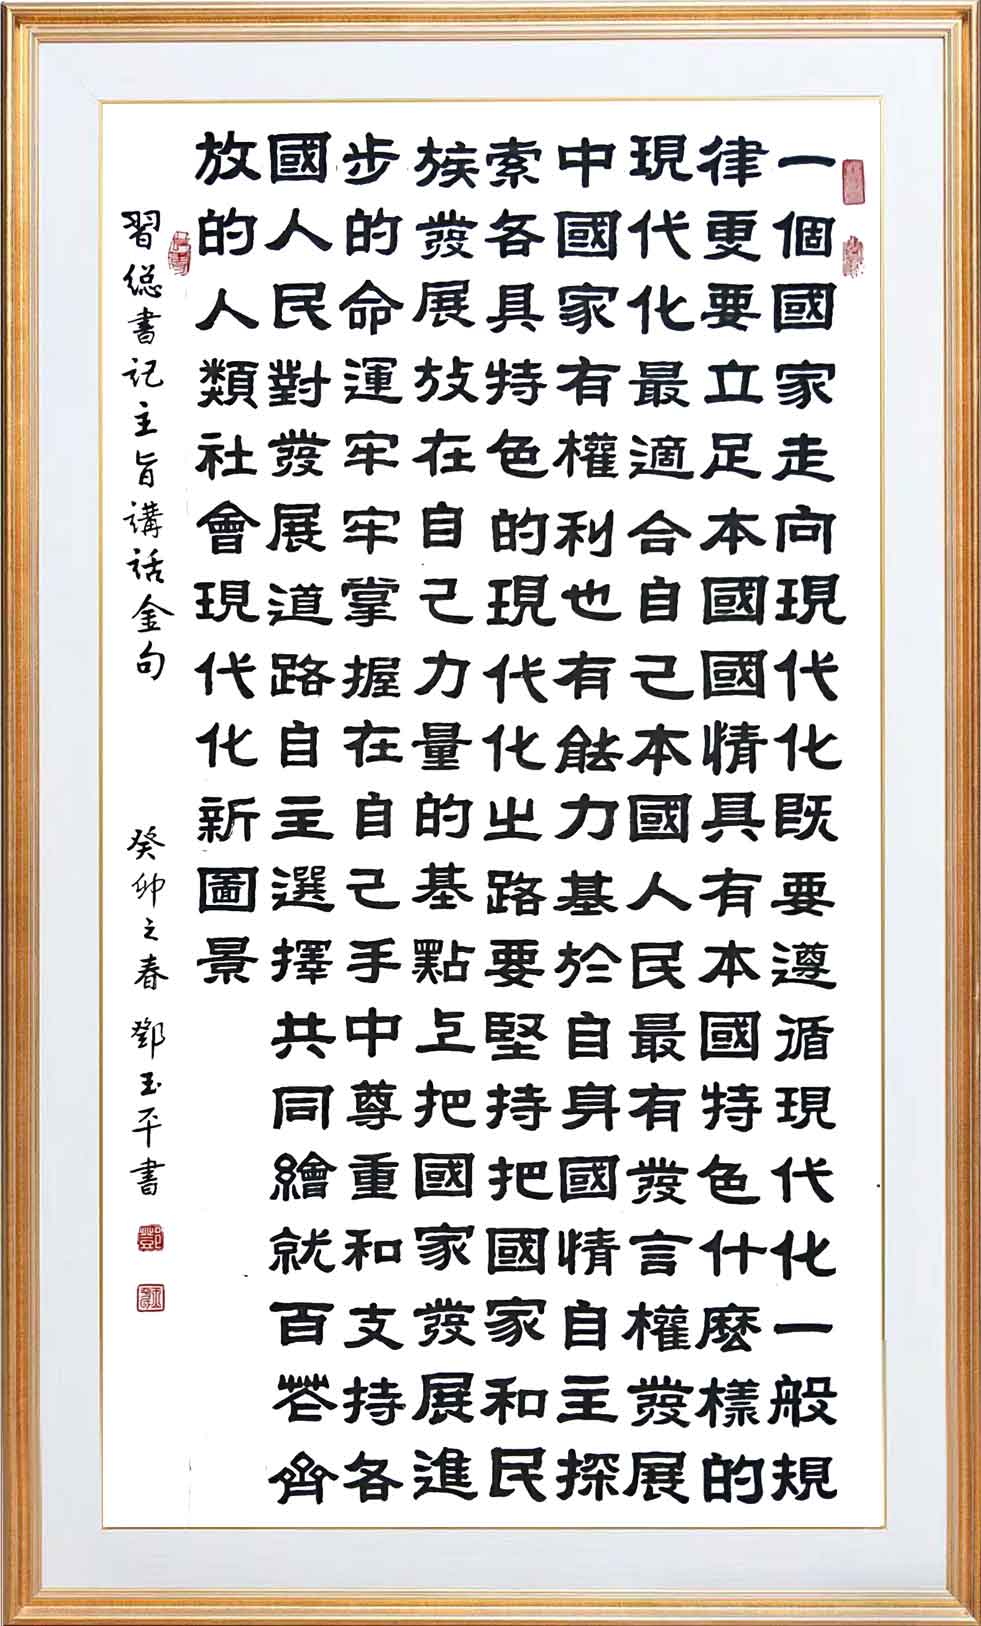 一個國家走向現代化既要遵循現代化一般規
律更要立足本國國情具有本國特色什麽樣的
現代化最適合自己本國人民最有發言權發展
中國家有權利也有能力基於自身國情自主探
索各具特色的現代化之路要堅持把國家和民
族發展放在自己力量的基點上把國家發展進
步的命運牢牢掌握在自己手中尊重和支持各
國人民對發展道路自主選擇共同繪就百花齊
放的人類社會現代化新圖景
習總書記主旨講話金句 癸卯之春 鄧玉平書